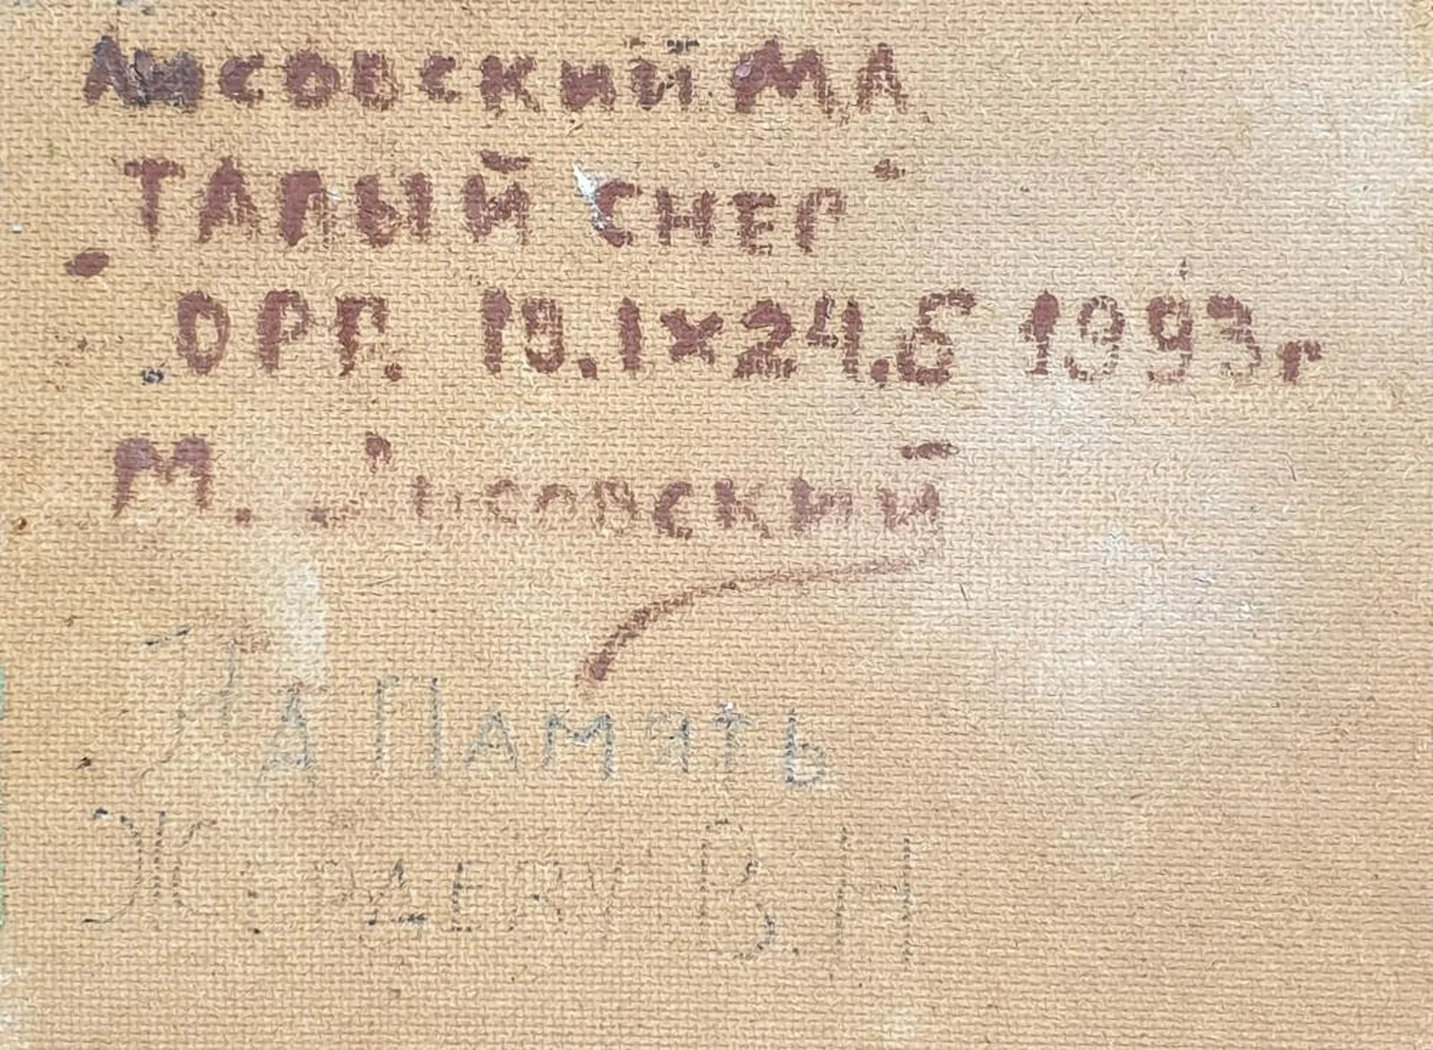 Лисовский МА
ТАЛЫЙ СНЕГ"
ОРГ. 19.1×24.5 1993г
М. Лисовский
На Память
В.Н